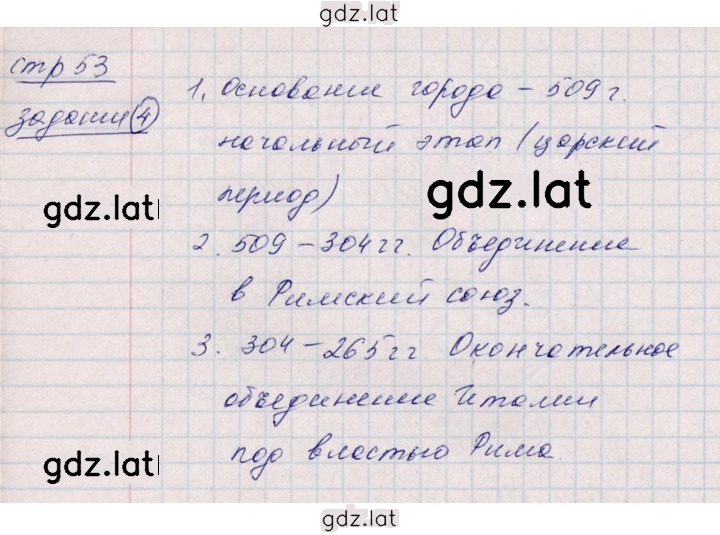 gdz.lat
стр 53
задание 4
1. Основание города – 509 г.
начальный этап (царский
период)
gdz.lat
gdz.lat
2. 509 – 304 гг. Объединение
в Римский союз.
3. 304 – 265 гг Окончательное
объединение Италии
под властью Рима.
gdz.lat
gdz.lat